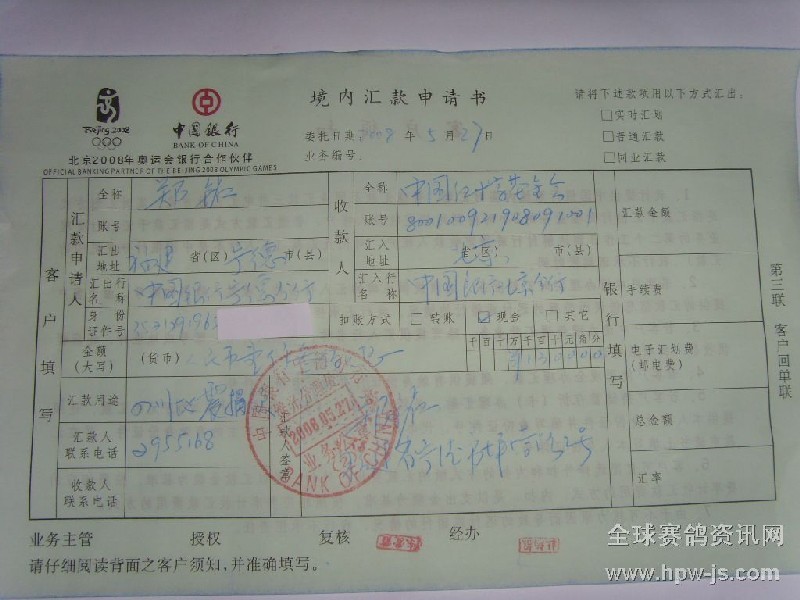 境内汇款申请书
请将下述款项用以下方式汇出:
Beijing 2008
中国银行
BANK OF CHINA
委托日期 2008 年 5 月 27 日
□实时汇划
业务编号:
□普通汇款
□同业汇款
北京2008年奥运会银行合作伙伴
OFFICIAL BANKING PARTNER OF THE BEIJING 2008 OLYMPIC GAMES
客户填写
汇款申请人
全称
账号
汇出地址 福建 省(区) 宁德 市(县)
汇出行名称 中国银行宁德分行
身份证件号
收款人
全称 中国红十字基金会
账号 800100921908091001
汇入地址 北京 省(区) 市(县)
汇入行名称 中国银行北京分行
扣账方式 □转账 ☑现金 □其它
金额(大写) (货币)
千百十万千百十元角分
汇款用途 四川地震捐
汇款人联系电话 2955168
收款人联系电话
汇款人签章
2008.05.27
BANK OF
银行填写
汇款金额
手续费
电子汇划费(邮电费)
总金额
汇率
第三联 客户回单联
业务主管 授权 复核 经办
请仔细阅读背面之客户须知,并准确填写。
全球赛鸽资讯网
www.hpw-js.com